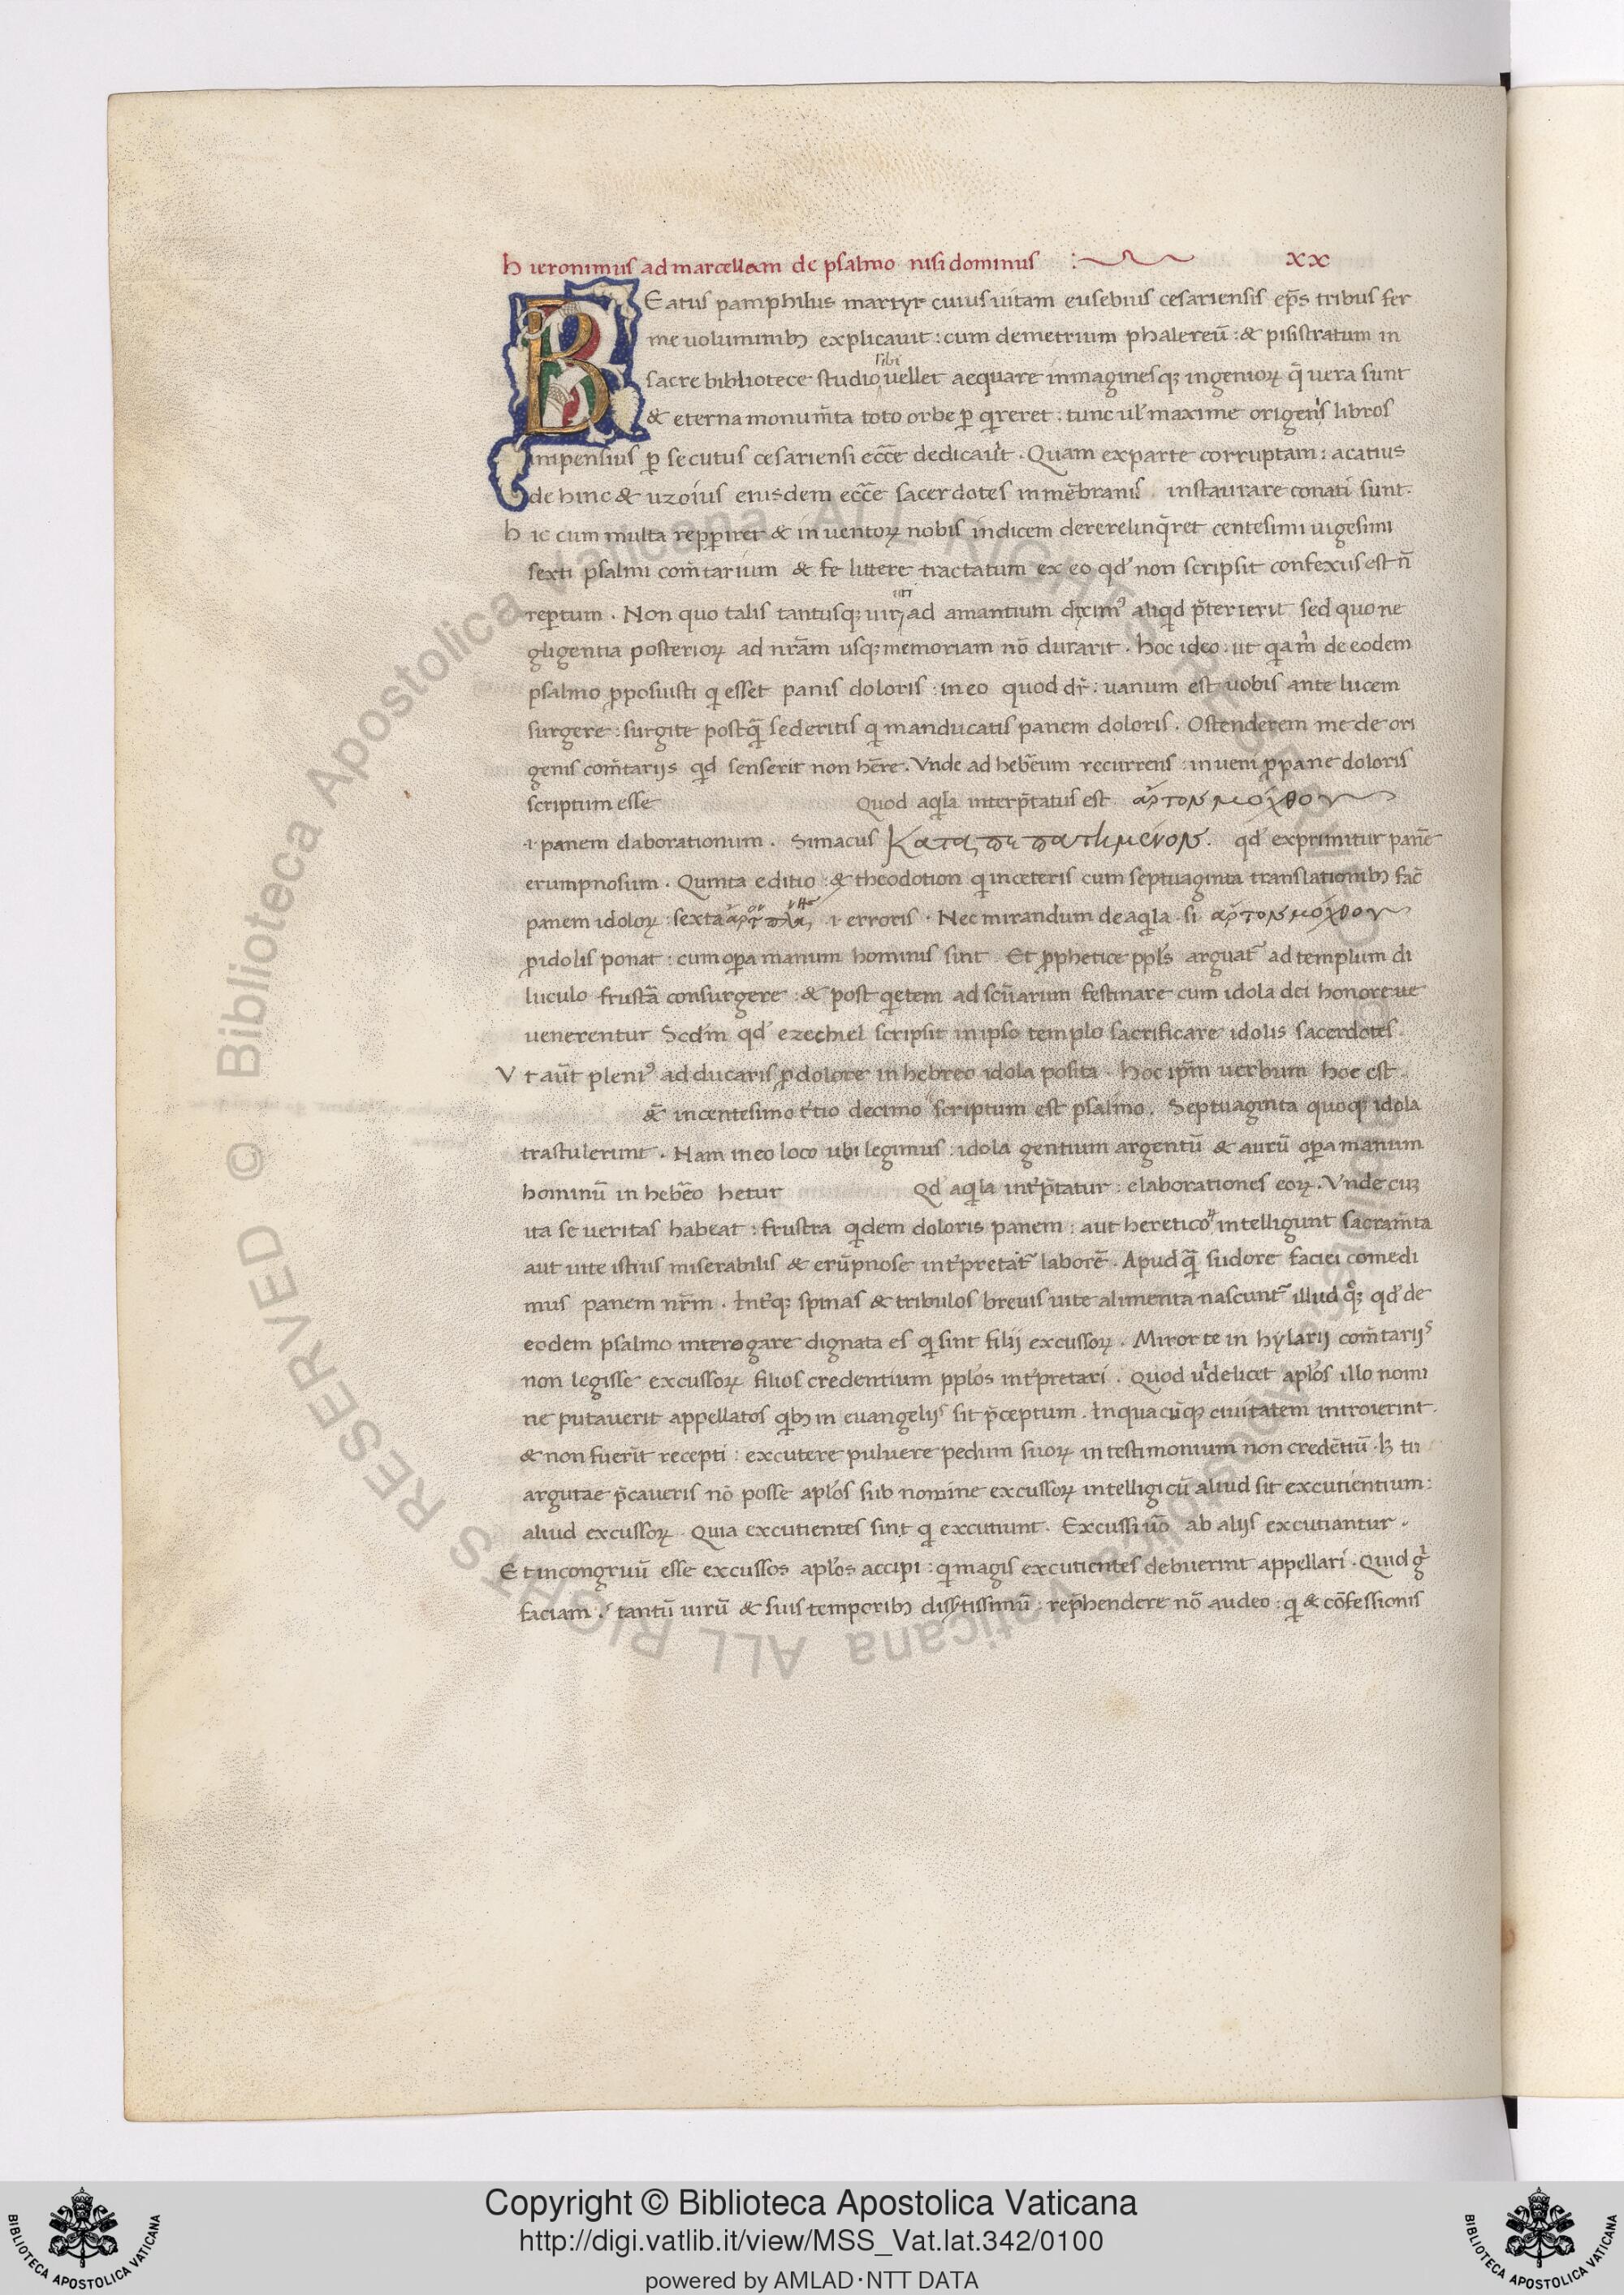 Hieronimus ad marcellam de psalmo nisi dominus :~ xx
BEatus pamphilus martyr cuius uitam eusebius cesariensis ep̄s tribus fer
me uoluminibꝫ explicauit : cum demetrium phalereū : & pisistratum in
sacre bibliotece studio sibi uellet aequare inmaginesqꝫ ingenioꝝ q̄ vera sunt
& eterna monum̄ta toto orbe ꝑ qͥreret : tunc ul' maxime origenis libros
impensius ꝑ secutus cesariensi ecc̄e dedicauit . Quam ex parte corruptam : acatius
dehinc & uzoius eiusdem ecc̄e sacerdotes in mēbranis . instaurare conati sunt .
hic cum multa repꝑiret & inuentoꝝ nobis indicem derereli̅nqͥret centesimi uigesimi
sexti psalmi com̄tarium & fe littere tractatum ex eo qd' non scripsit confexus est n̄
reꝑtum . Non quo talis tantusqꝫ uir ad amantium dicimꝰ aliqͥd p̄terierit sed quo ne
gligentia posterioꝝ ad nr̄am usqꝫ memoriam nō durarit . hoc ideo ut qͥa m̄ de eodem
psalmo ꝓposuisti qͥ esset panis doloris : in eo quod dr̄ : uanum est uobis ante lucem
surgere : surgite postqͣ̄ sederitis qͥ manducatis panem doloris . Ostenderem me de ori
genis com̄tarijs qͥd senserit non hēre . Vnde ad hebēum recurrens : inueni ꝓ pane doloris
scriptum esse Quod aqͥla interp̄tatus est ἄρτον μόχθου
.i. panem elaborationum . Simacus κατα πε πατημένον . qd' exprimitur panē
erumpnosum . Quinta editio : & theodotion qͥ in ceteris cum septuaginta translationibꝫ fac̄
panem idoloꝝ : sexta .i. erroris . Nec mirandum de aqͥla . si ἄρτον μόχθου
ꝓ idolis ponat : cum oꝑa manum hominis sint . Et ꝓphetice ppl's arguat̄ ad templum di
luculo frustā consurgere : & post qͥetem ad scūarum festinare cum idola dei honore ue
venerentur Scd̄m qd' ezechiel scripsit in ipso templo sacrificare idolis sacerdotes .
Vt aūt pleniꝰ adducaris ꝓ dolore in hebreo idola posita . hoc ip̄m uerbum hoc est .
& in centesimo t'tio decimo scriptum est psalmo . Septuaginta quoqꝫ idola
trastulerunt . Nam in eo loco ubi legimus : idola gentium argentū & aurū oꝑa manum
hominū in hebēo hetur Qd' aqͥla int'p̄tatur : elaborationes eoꝝ . Vnde cuꝫ
ita se veritas habeat : frustra qͥdem doloris panem : aut hereticoꝝ intelligunt sacram̄ta
aut uite istius miserabilis & erūpnose int'pretat̄ laborē . Apud qͣ̄ sudore faciei comedi
mus panem nr̄m . Int'qꝫ spinas & tribulos brevis uite alimenta nascunt̄ illud qͦqꝫ qd' de
eodem psalmo interogare dignata es qͥ sint filij excussoꝝ . Miror te in hylarij com̄tarijs
non legisse excussoꝝ filios credentium ppl'os int'pretari . Quod uͥdelicet apl'os illo nomi
ne putauerit appellatos qͥbꝫ in euangelijs sit p̄ceptum . In quacūqꝫ ciuitatem introierint .
& non fuerīt recepti : excutere puluere pedum suoꝝ in testimonium non credētiū . sꝫ tu
argutae p̄caueris nō posse apl'os sub nomine excussoꝝ intelligi cū aliud sit excutientium :
aliud excussoꝝ . Quia excutientes sint qͥ excutiunt . Excussi uō ab alijs excutiantur .
Et incongruū esse excussos apl'os accipi : qͥ magis excutientes debuerint appellari . Quid gͥ
faciam ? tantū uirū & suis temporibꝫ dissertissimū : rep̄hendere nō audeo : qͥ & cōfessionis
© Biblioteca Apostolica Vaticana ALL RIGHTS RESERVED
Copyright © Biblioteca Apostolica Vaticana
http://digi.vatlib.it/view/MSS_Vat.lat.342/0100
powered by AMLAD·NTT DATA
BIBLIOTECA APOSTOLICA VATICANA
BIBLIOTECA APOSTOLICA VATICANA